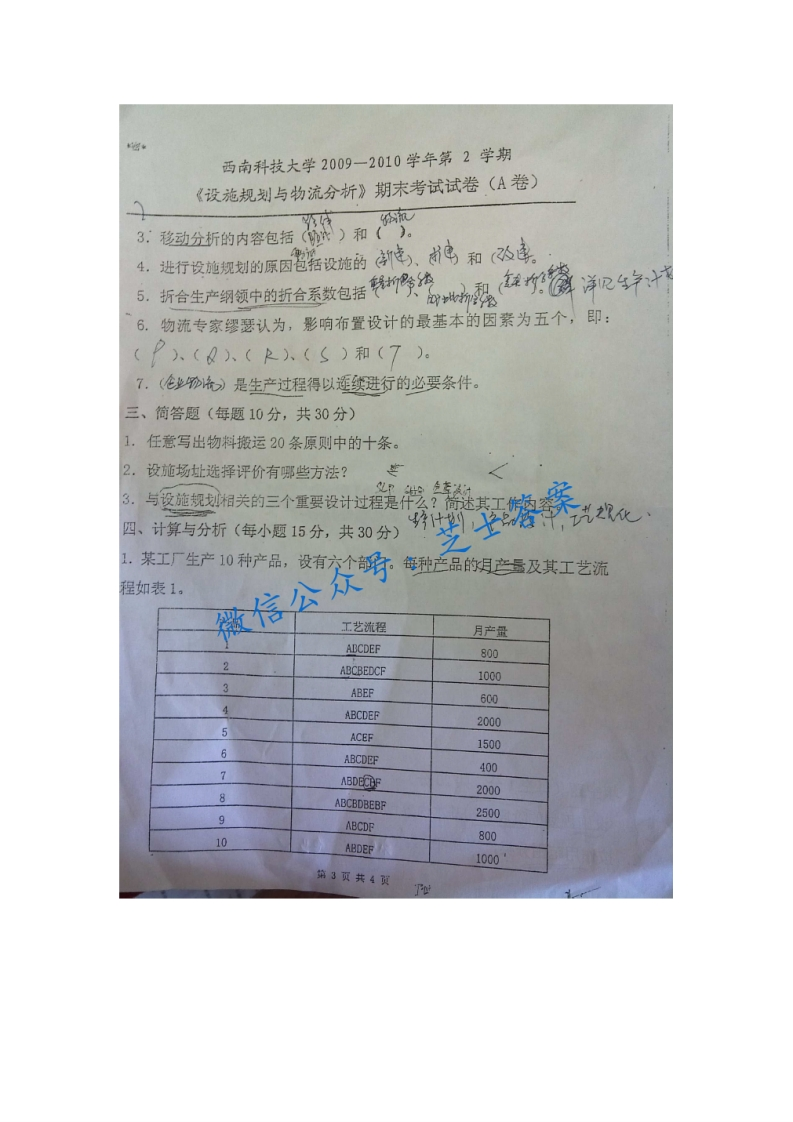 西南科技大学2009—2010学年第 2 学期
《设施规划与物流分析》期末考试试卷（A卷）
3. 移动分析的内容包括（ ）和（ 物流 ）。
4. 进行设施规划的原因包括设施的（新建）、（ ）和（改建）。
5. 折合生产纲领中的折合系数包括（ ）、（ ）和（ ）。
6. 物流专家缪瑟认为，影响布置设计的最基本的因素为五个，即：
（ P ）、（ Q ）、（ R ）、（ S ）和（ T ）。
7.（企业物流）是生产过程得以连续进行的必要条件。
三、简答题（每题10分，共30分）
1. 任意写出物料搬运20条原则中的十条。
2. 设施场址选择评价有哪些方法？
3. 与设施规划相关的三个重要设计过程是什么？简述其工作内容
四、计算与分析（每小题15分，共30分）
1. 某工厂生产10种产品，设有六个部 。每种产品的月产量及其工艺流
程如表1。
微信公众号：芝士答案
工艺流程 月产量
1 ABCDEF 800
2 ABCBEDCF 1000
3 ABEF 600
4 ABCDEF 2000
5 ACEF 1500
6 ABCDEF 400
7 ABDECBF 2000
8 ABCBDBEBF 2500
9 ABCDF 800
10 ABDEF 1000
第 3 页 共 4 页